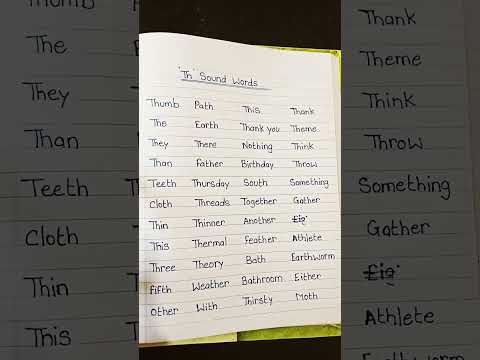 Thumb
The
They
Than
Teeth
Cloth
Thin
This
"Th" Sound Words
Thumb Path This Thank
The Earth Thank you Theme
They There Nothing Think
Than Father Birthday Throw
Teeth Thursday South Something
Cloth Threads Together Gather
Thin Thinner Another
This Thermal Feather Athlete
Three Theory Bath Earthworm
Fifth Weather Bathroom Either
Other With Thirsty Moth
Thank
Theme
Think
Throw
Something
Gather
Athlete